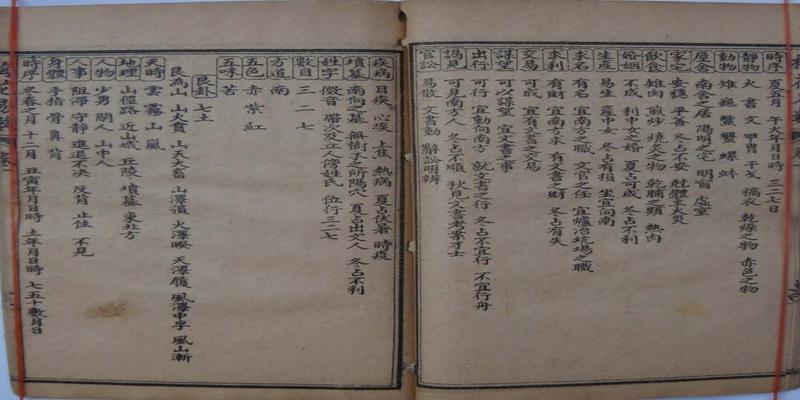 時序 夏五月 午火年月日時 三二七日
靜物 火 書文 甲冑 干戈 槁衣 乾燥之物 赤色之物
動物 雉 龜 鱉 蟹 螺 蚌
屋舍 南舍之居 陽明之宅 明窗 虛室
家宅 安穩 平善 冬占不安 尅體主火災
飲食 雉肉 煎炒 燒炙之物 乾脯之類 熱肉
婚姻 不成 利中女之婚 夏占可成 冬占不利
生產 易生 產中女 冬占有損 坐宜向南
求名 有名 宜南方之職 文官之任 宜爐冶坑場之職
求利 有財 宜南方求 有文書之財 冬占有失
交易 可成 宜有文書之交易
謀望 可以謀望 宜文書之事
出行 可行 宜動向南方 就文書之行 冬占不宜行 不宜行舟
謁見 可見南方人 冬占不順 秋見文書考案才士
官訟 易散 文書動 辭訟明辨
疾病 目疾 心疾 上焦 熱病 夏占伏暑 時疫
墳墓 南向之墓 無樹子之所陽穴 夏占出文人 冬占不利
姓字 徵音 帶次及立人傍姓氏 位行三二七
數目 三 二 七
方道 南
五色 赤 紫 紅
五味 苦
艮卦 七 土
艮為山 山火賁 山天大畜 山澤損 火澤睽 天澤履 風澤中孚 風山漸
天時 雲 霧 山嵐
地理 山徑路 近山城 丘陵 墳墓 東北方
人物 少男 閒人 山中人
人事 阻滯 守靜 進退不決 反背 止住 不見
身體 手指 骨 鼻 背
時序 冬春之月 十二月 丑寅年月日時 土年月日時 七五十數月日